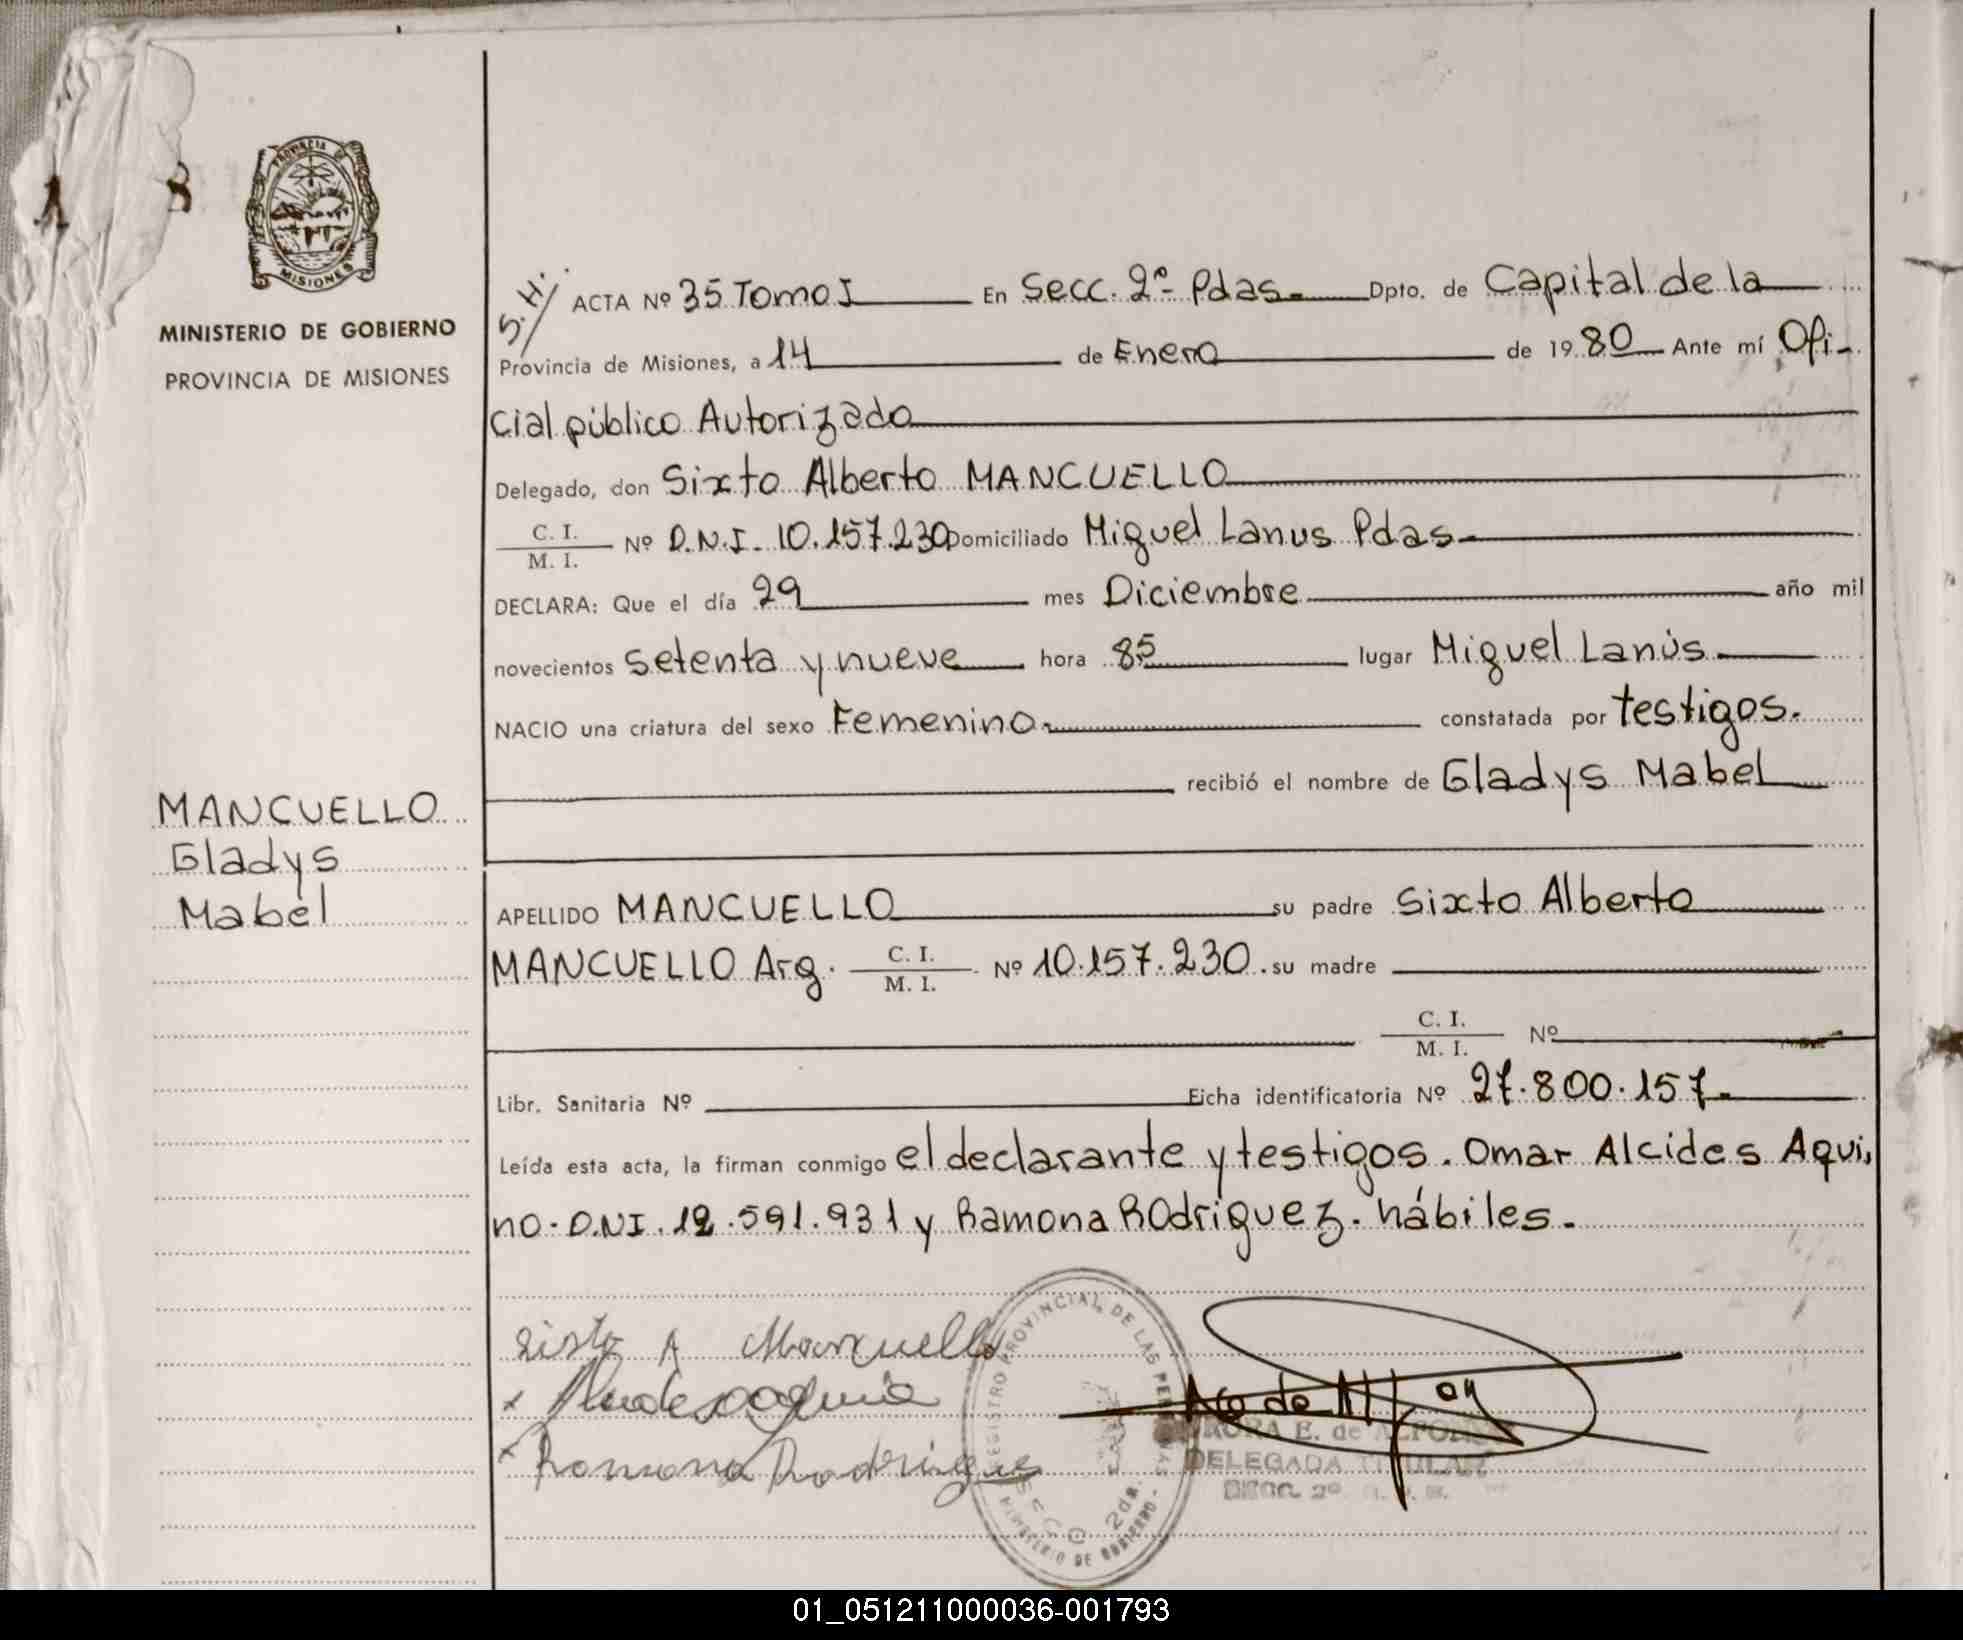 18
PROVINCIA DE
MISIONES
MINISTERIO DE GOBIERNO
PROVINCIA DE MISIONES
MANCUELLO
Gladys
Mabel
S.H.
ACTA Nº 35 Tomo I En Secc. 2º- Pdas. Dpto. de Capital de la
Provincia de Misiones, a 14 de Enero de 1980 Ante mí Ofi-
cial público Autorizado
Delegado, don Sixto Alberto MANCUELLO
C. I.
M. I. Nº D.N.I. 10.157.230 Domiciliado Miguel Lanus Pdas-
DECLARA: Que el día 29 mes Diciembre año mil
novecientos setenta y nueve hora 85 lugar Miguel Lanús
NACIO una criatura del sexo Femenino. constatada por testigos.
recibió el nombre de Gladys Mabel
APELLIDO MANCUELLO su padre Sixto Alberto
MANCUELLO Arg. C. I.
M. I. Nº 10.157.230. su madre
C. I.
M. I. Nº
Libr. Sanitaria Nº Ficha identificatoria Nº 27.800.157.
Leída esta acta, la firman conmigo el declarante y testigos. Omar Alcides Aqui,
no. D.N.I. 12.591.931 y Ramona Rodriguez. hábiles.
Sisto A Mancuello
Ramona Rodrigue
REGISTRO PROVINCIAL DE LAS PERSONAS
SECC 2da.
MINISTERIO DE GOBIERNO
E. de ALFONSO
DELEGADA TITULAR
SECC. 2º
01_051211000036-001793